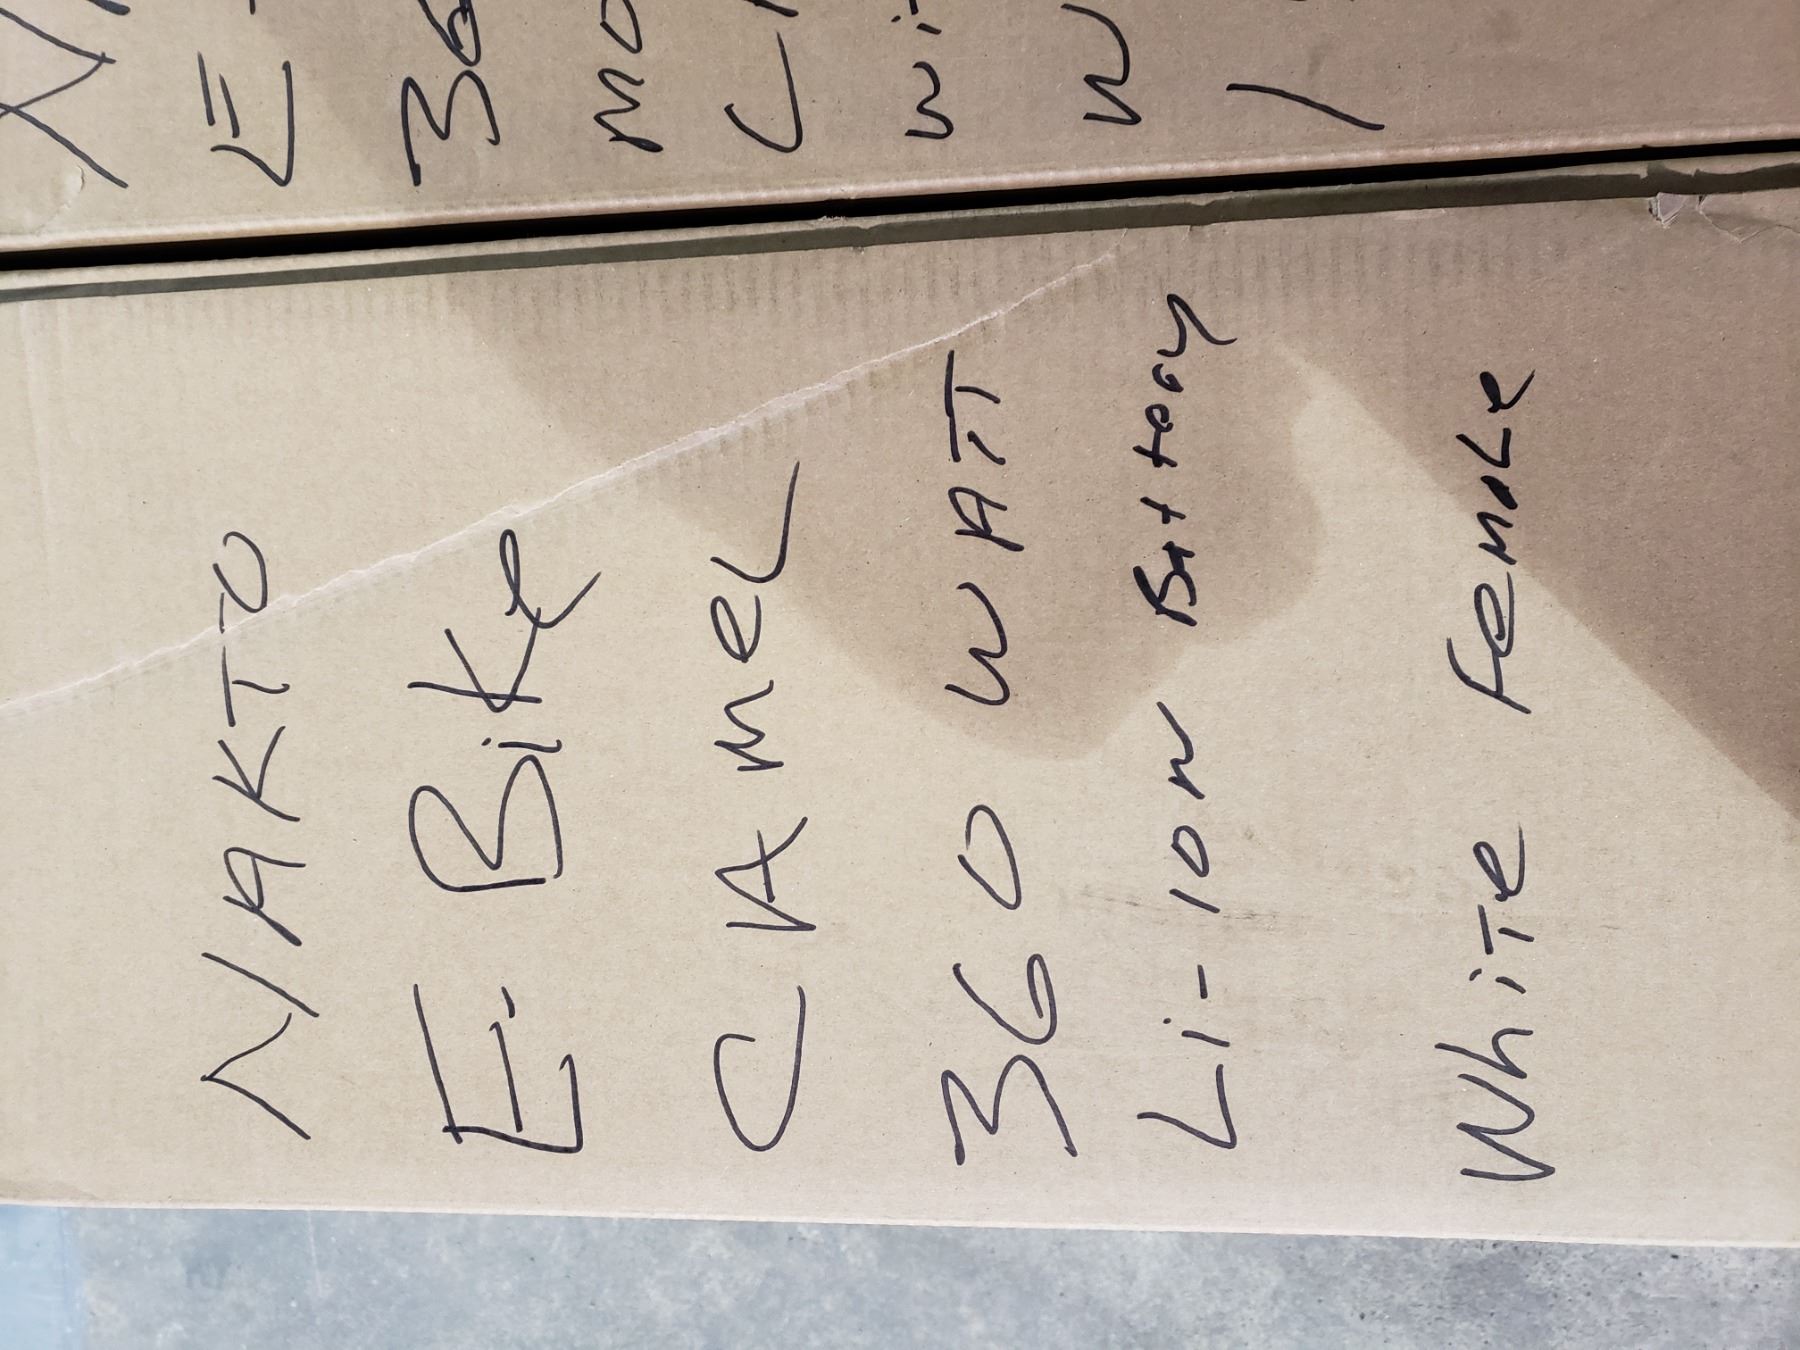 NAKTO
E-Bike
CAMeL
360 WATT
Li-ION Battery
WhiTe FemaLe
N
E-
36
MO
C
Wi
W